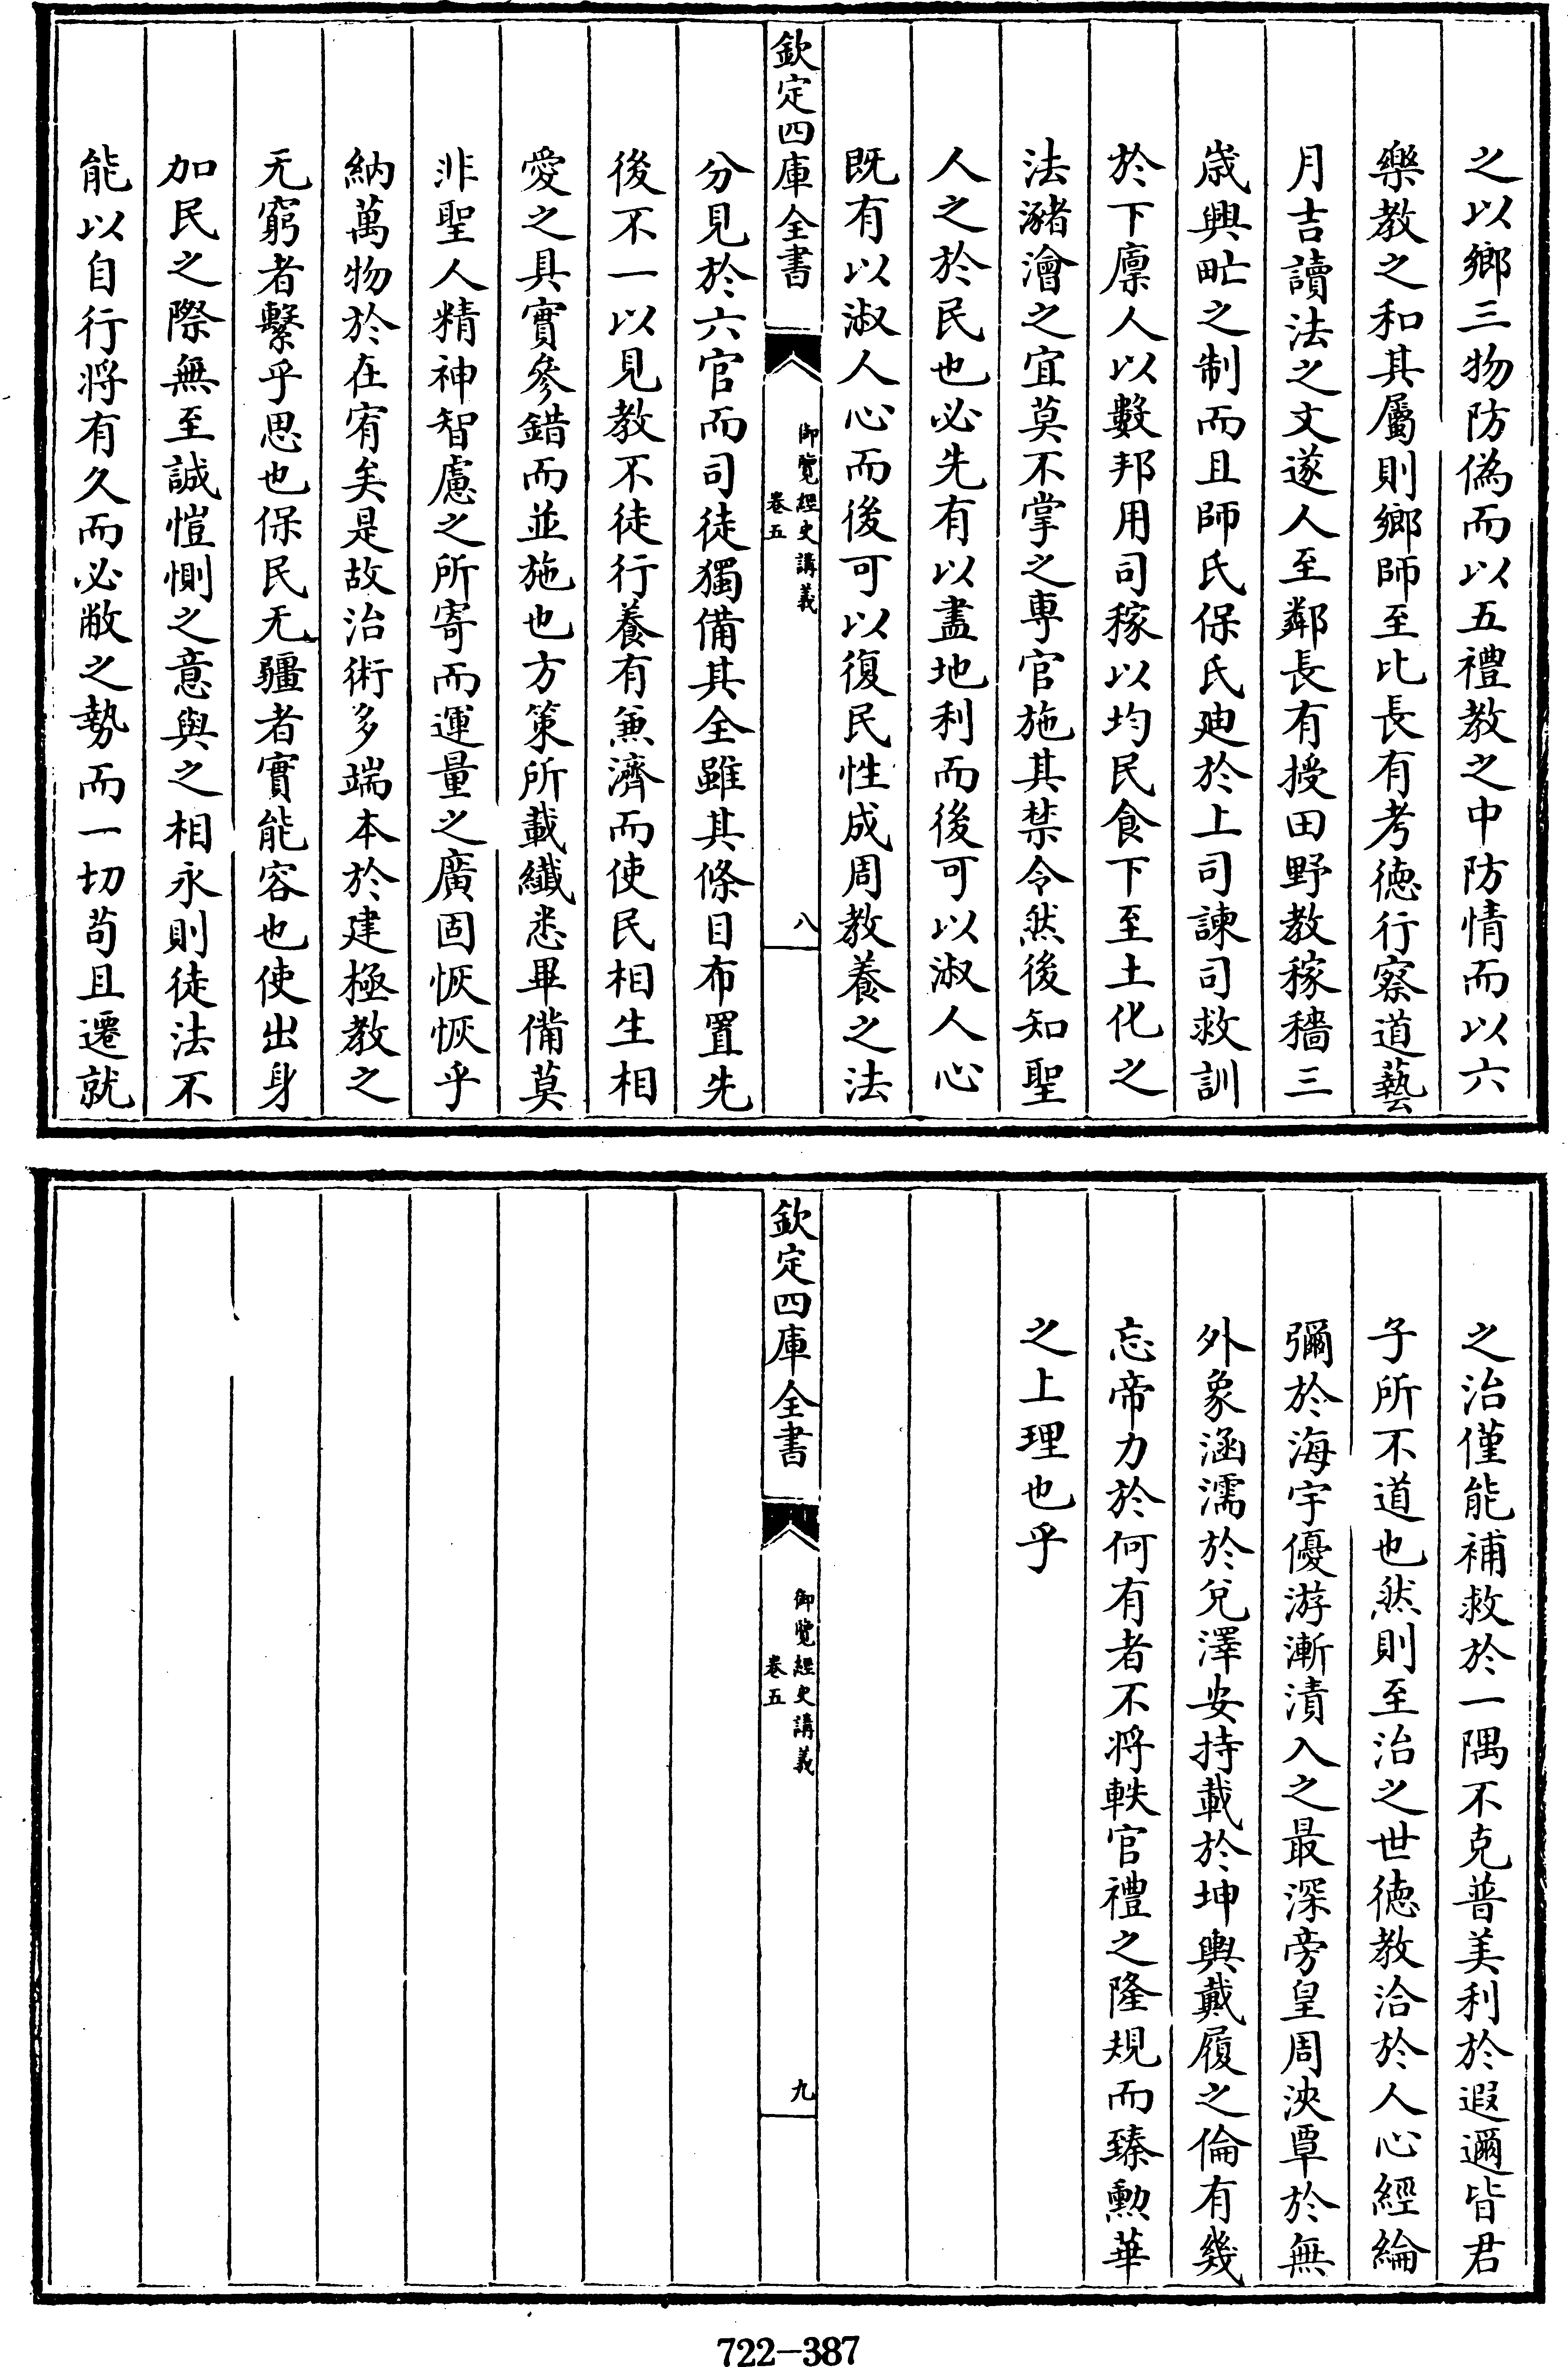 之以鄉三物防偽而以五禮教之中防情而以六
樂教之和其屬則鄉師至比長有考徳行察道藝
月吉讀法之文遂人至鄰長有授田野教稼穡三
歳興甿之制而且師氏保氏廸於上司諫司救訓
於下廪人以數邦用司稼以均民食下至土化之
法瀦澮之宜莫不掌之専官施其禁令然後知聖
人之於民也必先有以盡地利而後可以淑人心
既有以淑人心而後可以復民性成周教養之法
欽定四庫全書
御覽經史講義
卷五
八
分見於六官而司徒獨備其全雖其條目布置先
後不一以見教不徒行養有兼濟而使民相生相
愛之具實參錯而並施也方策所載纖悉畢備莫
非聖人精神智慮之所寄而運量之廣固恢恢乎
納萬物於在宥矣是故治術多端本於建極教之
无窮者繫乎思也保民无疆者實能容也使出身
加民之際無至誠愷惻之意與之相永則徒法不
能以自行将有久而必敝之勢而一切苟且遷就
之治僅能補救於一隅不克普美利於遐邇皆君
子所不道也然則至治之世徳教洽於人心經綸
彌於海宇優游漸漬入之最深旁皇周浹覃於無
外象涵濡於兌澤安持載於坤輿戴履之倫有幾
忘帝力於何有者不将軼官禮之隆規而臻勲華
之上理也乎
欽定四庫全書
御覽經史講義
卷五
九
722-387